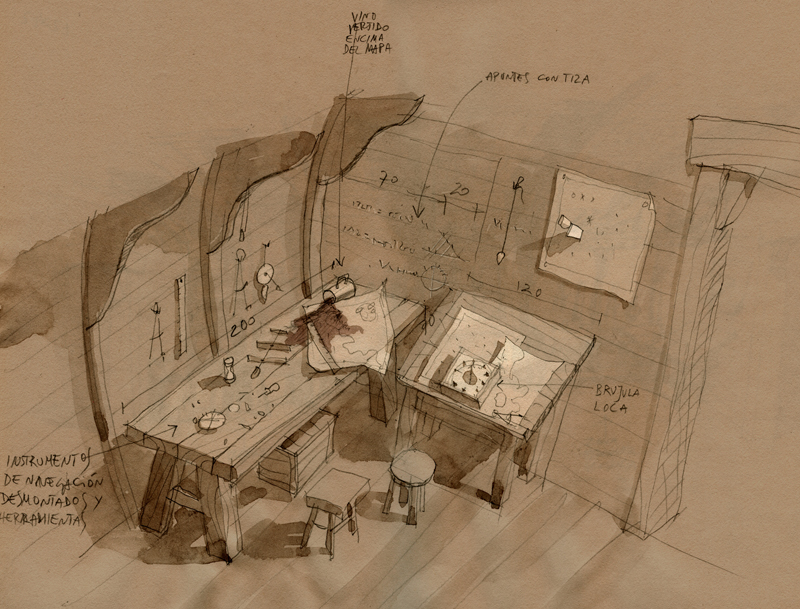 VINO
VERTIDO
ENCIMA
DEL MAPA
APUNTES CON TIZA
70
20
120
200
20
BRUJULA
LOCA
INSTRUMENTOS
DE NAVEGACIÓN
DESMONTADOS Y
HERRAMIENTAS